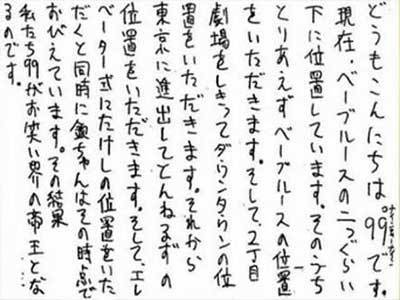 どうもこんにちは。99です。
現在、ベーブルースの二つぐらい
下に位置しています。そのうち
とりあえずベーブルースの位置
をいただきます。そして、2丁目
劇場をしきってダウンタウンの位
置をいただきます。それから
東京に進出してとんねるずの
位置をいただきます。そして、エレ
ベーター式にたけしの位置をいた
だくと同時に欽ちゃんはその時点で
おびえています。その結果
私たち99がお笑い界の帝王とな
るのです。